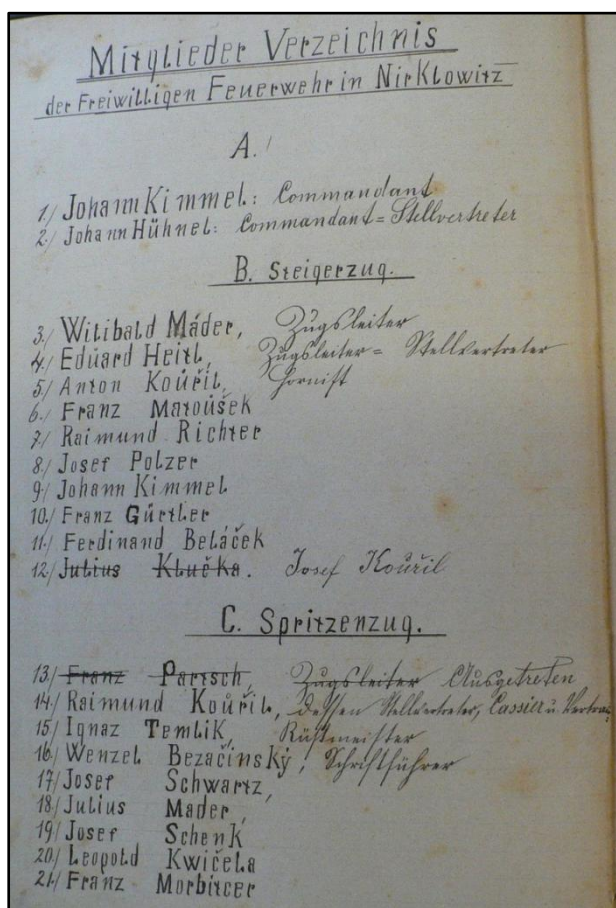 Mitglieder Verzeichnis
der Freiwilligen Feuerwehr in Nirklowitz
A.
1./ Johann Kimmel: Commandant
2./ Johann Hühnel: Commandant=Stellvertreter
B. Steigerzug.
3./ Wilibald Máder, Zugsleiter
4./ Eduard Heitl, Zugsleiter= Stellvertreter
5./ Anton Kouřil, Hornist
6./ Franz Matoušek
7./ Raimund Richter
8./ Josef Polzer
9./ Johann Kimmel
10./ Franz Gürtler
11./ Ferdinand Beláček
12./ Julius Klučka. Josef Kouřil
C. Spritzenzug.
13./ Franz Partsch, Zugsleiter Ausgetreten
14./ Raimund Kouřil, dessen Stellvertreter, Cassier u.
15./ Ignaz Temlik, Rüstmeister
16./ Wenzel Bezačinský, Schriftführer
17./ Josef Schwartz,
18./ Julius Mader,
19./ Josef Schenk
20./ Leopold Kwičela
21./ Franz Morbitcer